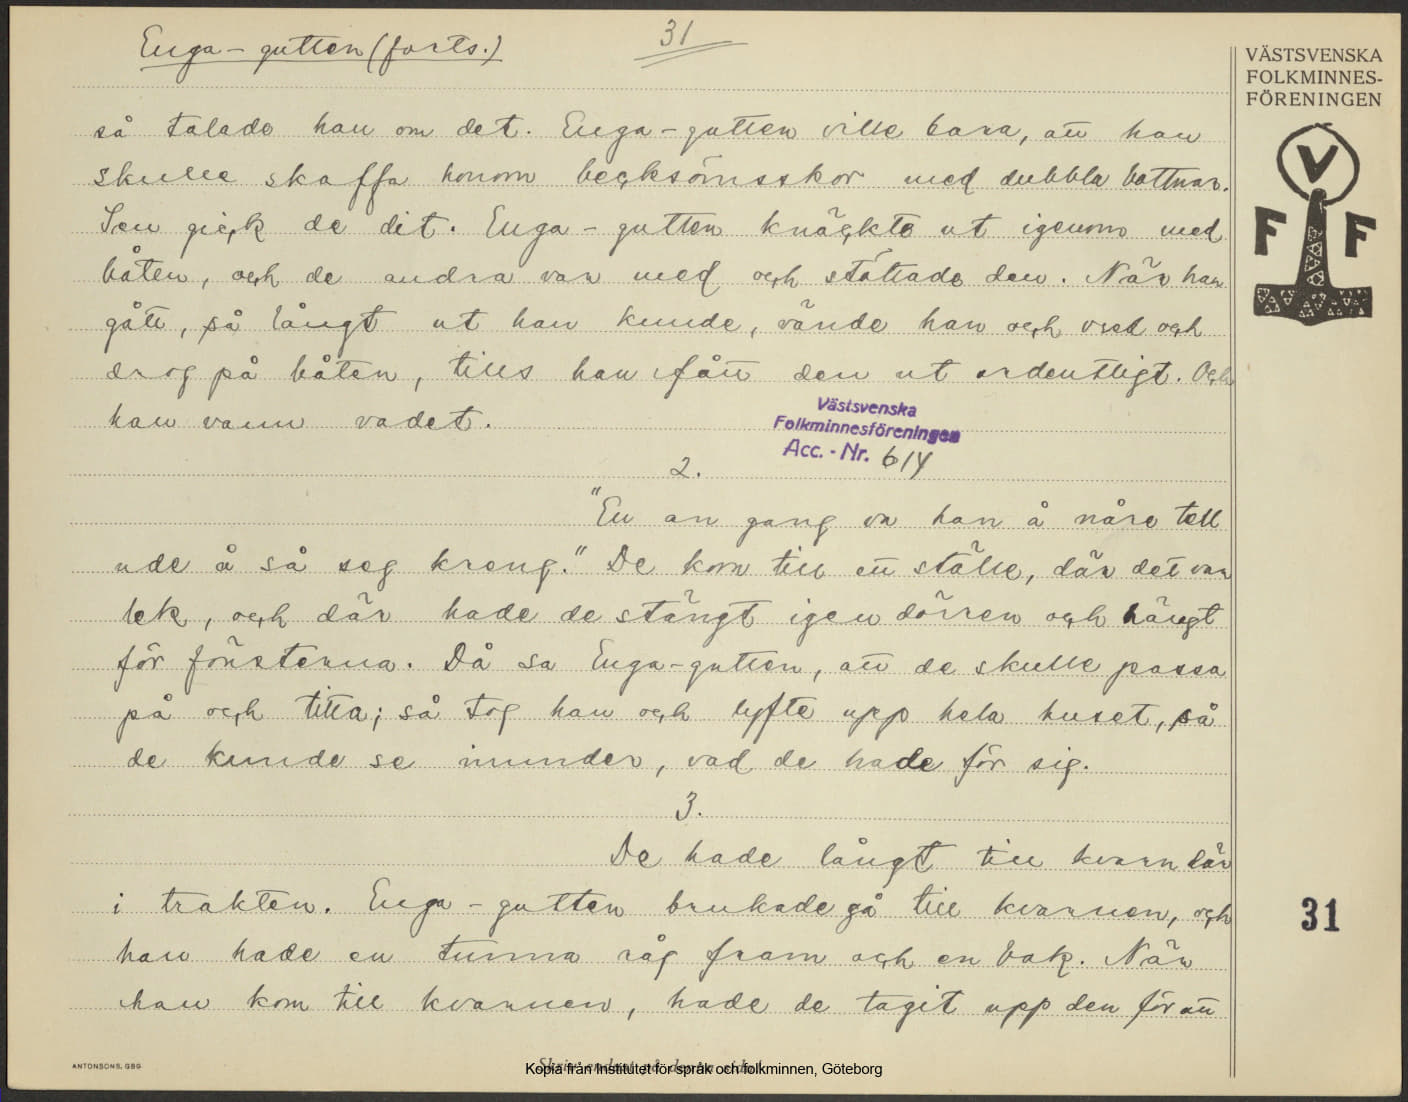 Enga-gutten (forts.)
31
VÄSTSVENSKA
FOLKMINNES-
FÖRENINGEN
V
F F
så talade han om det. Enga-gutten ville bara, att han
skulle skaffa honom becksömsskor med dubbla bottnar.
Sen gick de dit. Enga-gutten knäckte ut igenom med
båten, och de andra var med och stöttade den. När han
gått, så långt ut han kunde, vände han och vred och
drog på båten, tills han fått den ut ordentligt. Och
han vann vadet.
Västsvenska
Folkminnesföreningen
Acc. - Nr. 614
2.
"En an gang va han å nåre tell
ude å så seg kreng." De kom till ett ställe, där det var
lek, och där hade de stängt igen dörren och hängt
för fönsterna. Då sa Enga-gutten, att de skulle passa
på och titta; så tog han och lyfte upp hela huset, så
de kunde se inunder, vad de hade för sig.
3.
De hade långt till kvarn där
i trakten. Enga-gutten brukade gå till kvarnen, och
han hade en tunna råg fram och en bak. När
han kom till kvarnen, hade de tagit upp den för att
31
ANTONSONS, GBG
Kopia från Institutet för språk och folkminnen, Göteborg